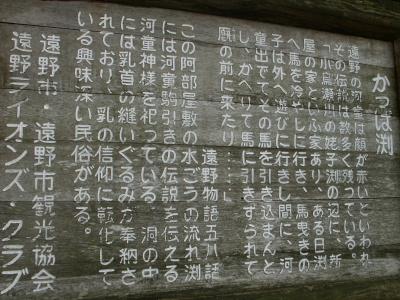 かっぱ渕
遠野の河童は顔が赤いといわれ
その伝説は数多く残っている。
「小烏瀬川の姥子淵の辺に、新
屋の家といふ家あり、ある日淵
へ馬を冷やしに行き、馬曳きの
子は外へ遊びに行きし間に、河
童出でてその馬を引き込まんと
し、かへりて馬に引きずられて
厩の前に来たり……」
遠野物語五八話
この阿部屋敷の水ごうの流れ渕
には河童駒引きの伝説を伝える
河童神様を祀っている。洞の中
には乳首の縫いぐるみが奉納さ
れており、乳の信仰に転化して
いる興味深い民俗がある。
遠野市・遠野市観光協会
遠野ライオンズ・クラブ